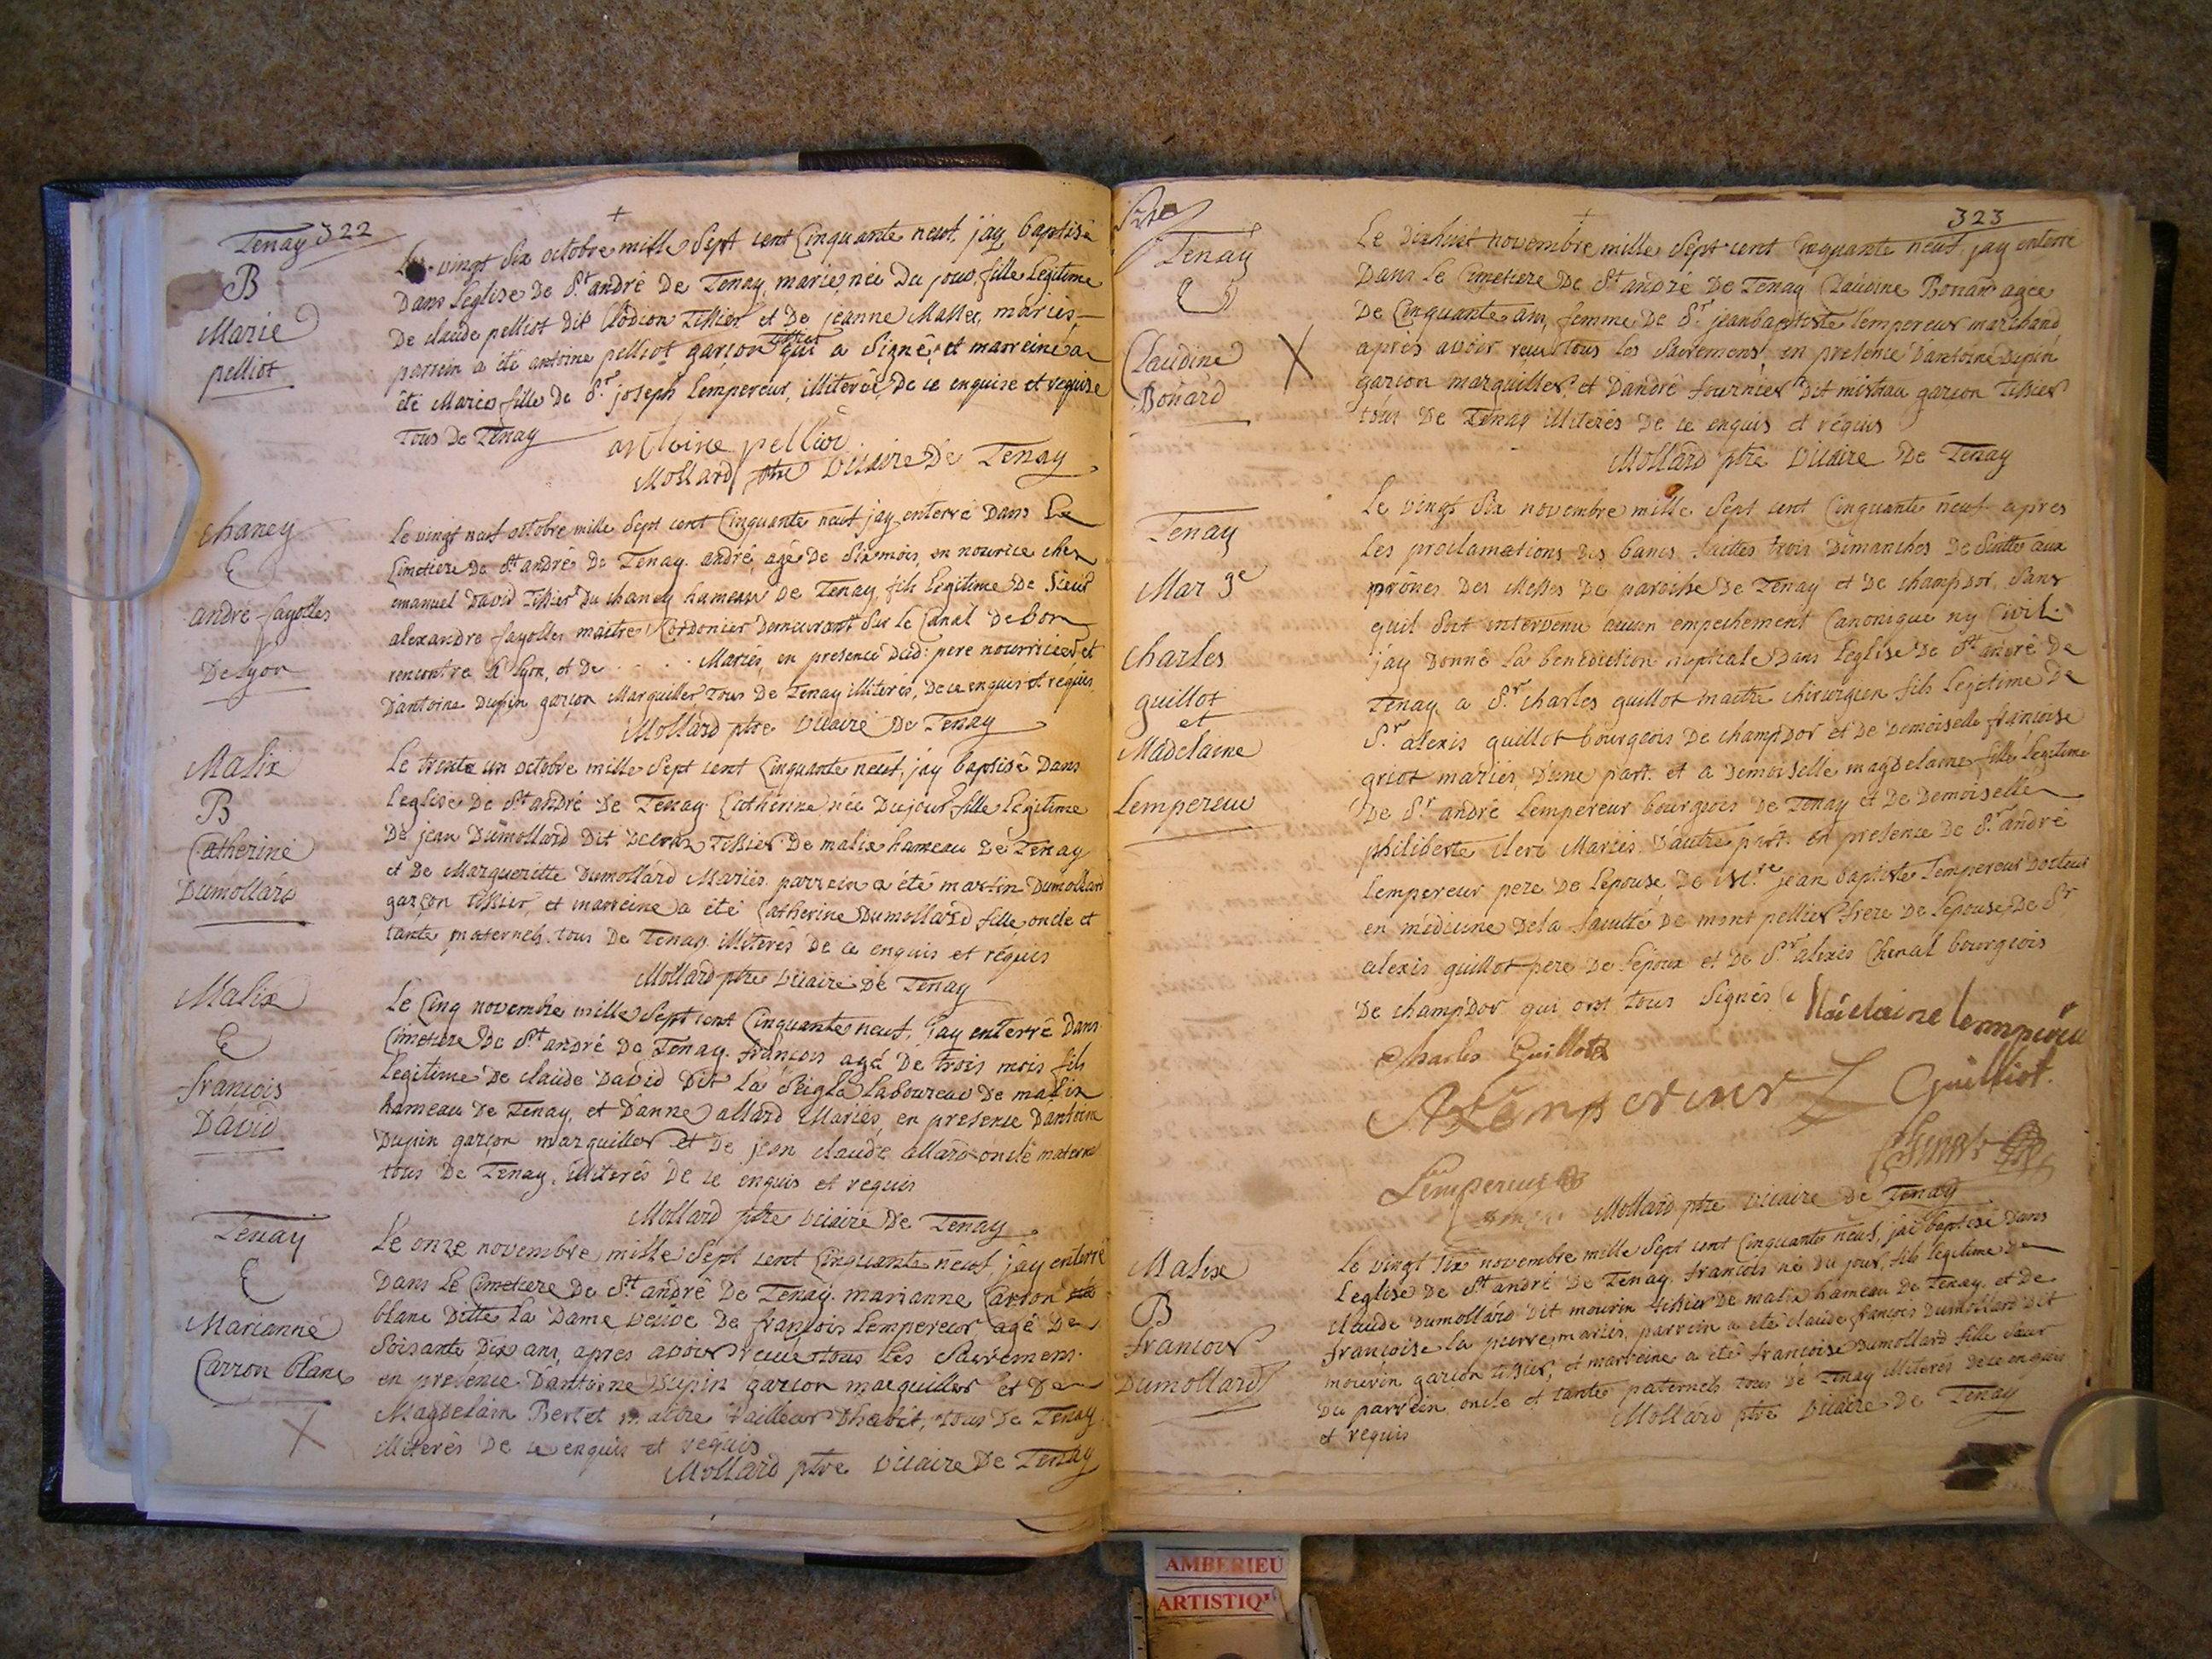 Tenay 322
B
Marie
pelliot
Le vingt six octobre mille sept cent Cinquante neuf, j'ay baptisé
Dans L'eglise De St andré De Tenay, marie, née Du jour, fille Legitime
De claude pelliot dit Clodion Tissier et De jeanne Mallet, mariés,
parrein a été antoine pelliot garçon tissier qui a Signé, et marreine a
été Marie fille De Sr joseph Lempereur, illiterée, De ce enquise et requise
tous De Tenay
antoine pelliot
Mollard ptre Vicaire De Tenay
chaney
E
andré fayolles
De lyon
Le vingt neuf octobre mille Sept cent Cinquante neuf jay enterré Dans Le
Cimetiere De St andré De Tenay. andré, agé De Six mois, en nourice chez
emanuel David Tissier Du chaney hameau De Tenay fils Legitime De Sieur
alexandre fayolles maitre Cordonier Demeurant Sur le Canal De bon
rencontre A lyon, et De . . . . Mariés, en presence Dud: pere nourricier et
D'antoine Dupin garçon Marguiller, tous De Tenay illiterés, De ce enquis et requis
Mollard ptre Vicaire De Tenay
Malix
B
Catherine
Dumollard
Le trente un octobre mille Sept cent Cinquante neuf, j'ay baptisé Dans
L'eglise De St andré De Tenay Catherine née Du jour fille Legitime
De jean Dumollard Dit Tissier De malix hameau De Tenay
et De Margueritte Dumollard Mariés. parrein a été martin Dumollard
garçon tissier, et marreine a été Catherine Dumollard fille, oncle et
tante maternels, tous De Tenay illiterés De ce enquis et requis
Mollard ptre Vicaire De Tenay
Malix
E
francois
David
Le Cinq novembre mille Sept cent Cinquante neuf, j'ay enterré Dans
Cimetiere De St andré De Tenay. françois agé De trois mois fils
Legitime De claude David Dit La Seigle Laboureur De malix
hameau De Tenay, et D'anne allard Mariés, en presence D'antoine
Dupin garçon marguiller et De jean claude allard oncle maternel
tous De Tenay, illiterés De ce enquis et requis
Mollard ptre Vicaire De Tenay
Tenay
E
Marianne
Carron blanc
Le onze novembre mille Sept cent Cinquante neuf, j'ay enterré
Dans Le Cimetiere De St andré De Tenay. marianne Carron
blanc Ditte La Dame veuve De françois Lempereur agé De
Soisante Dix ans, apres avoir reçue tous Les Sacremens.
en présence D'antoine Dupin garçon marguiller et De
Magdelain Bertet maitre tailleur D'habit, tous De Tenay
illiterés De ce enquis et requis
Mollard ptre Vicaire De Tenay
323
Tenay
Claudine
Bonard
Le Dixhuit novembre mille Sept cent Cinquante neuf, jay enterré
Dans Le Cimetiere De St andré De Tenay Claudine Bonard agée
De Cinquante ans, femme De Sr jean baptiste Lempereur marchand
après avoir reçu tous Les Sacremens, en presence D'antoine Dupin
garçon marguiller, et D'andré fournier Dit mistrau garçon Tissier
tous De Tenay illiterés De ce enquis et réquis
Mollard ptre Vicaire De Tenay
Tenay
Mar ge
charles
guillot
et
Madelaine
Lempereur
Le vingt Six novembre mille Sept cent Cinquante neuf apres
Les proclamations Des bancs faittes trois Dimanches De Suitte aux
prônes Des Messes De paroisse De Tenay et De champdor, Sans
quil Soit intervenu aucun empechement Canonique ny Civil.
j'ay Donné La benediction nuptiale Dans L'eglise De St andré De
Tenay a Sr charles guillot maitre chirurgien fils Legitime De
Sr alexis guillot bourgeois De champdor et De Demoiselle françoise
griot mariés, D'une part. et a Demoiselle magdelaine fille Legitime
De Sr andré Lempereur bourgeois De Tenay et De Demoiselle
philiberte clerc Mariés D'autre part. en presence De Sr andré
Lempereur pere De L'epouse De Me jean baptiste Lempereur Docteur
en médecine De la faculté De mont pellier frere De L'epouse, De Sr
alexis guillot pere De L'epoux et De Sr alexis Chenal bourgeois
De champdor qui ont tous Signés
Madelaine lempereu
Charles Guillot
A Lempereur
Guilliot.
Chenal
Lempereur
Mollard ptre Vicaire De Tenay
Malix
B
francois
Dumollard
Le vingt Six novembre mille Sept cent Cinquante neuf, jai baptisé Dans
L'eglise De St andré De Tenay, francois né Du jour, fils Legitime De
claude Dumollard Dit mourin tissier De malix hameau De Tenay, et De
françoise La pierre, mariés, parrein a été claude françois Dumollard Dit
mourin garçon tissier, et marreine a été françoise Dumollard fille Sœur
Du parrein, oncle et tante paternels tous De Tenay illiterés De ce enquis
et requis
Mollard ptre Vicaire De Tenay
AMBERIEU
ARTISTIQ